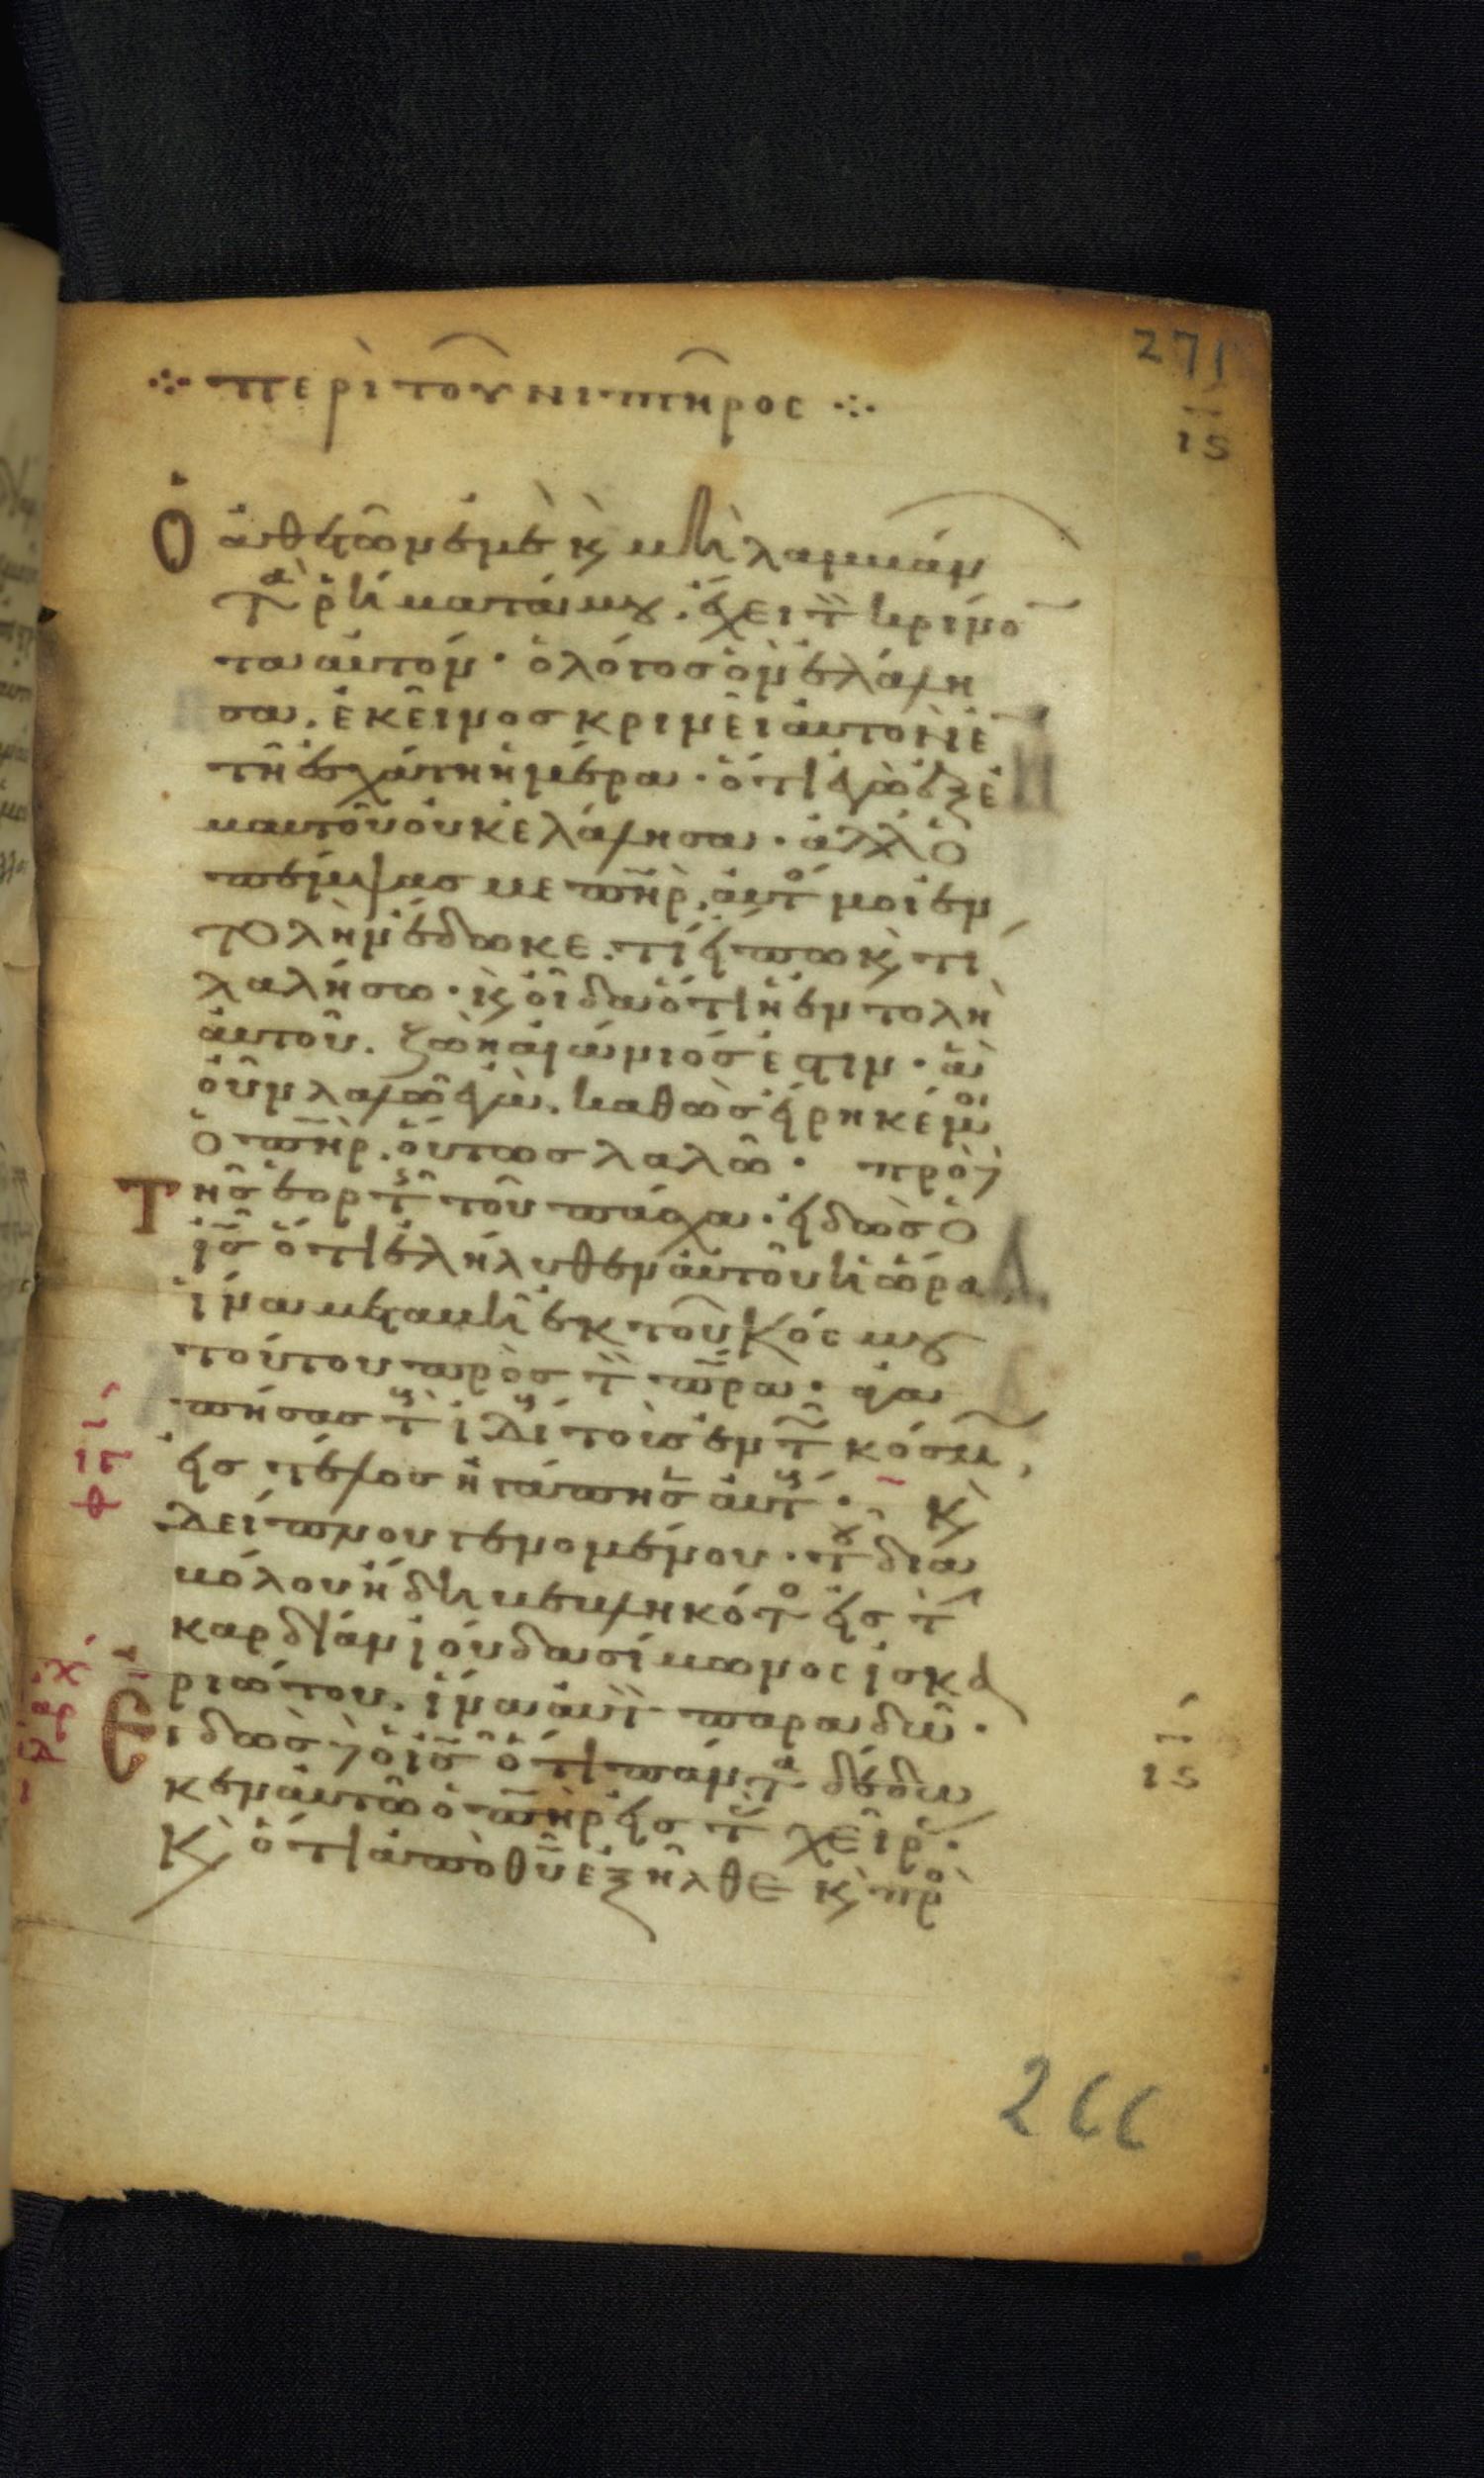 271
ις
⁘ περὶ τοῦ νιπτῆρος ⁘
Ὁ ἀθετῶν ἐμὲ κ̀ μὴ λαμβάν
τὰ ῥήματά μου. ἔχει τ̈ κρίνο
τα αὐτόν · ὁ λόγος ὃν ἐλάλη
σα, ἐκεῖνος κρινεῖ αὐτὸν ἐ
τῆ ἐσχάτη ἡμέρα · ὅτι ἐγὼ ἐξ ἐ
μαυτοῦ οὐκ ἐλάλησα · ἀλλ ὁ
πέμψας με πη̅ρ, αὐτ̊ μοι ἐν
τολὴν ἔδωκε. τί εἴπω κ̀ τί
λαλήσω · κ̀ οἶδα ὅτι ἡ ἐντολὴ
αὐτοῦ. ζωὴ αἰώνιός ἐστιν · ἃ
οὖν λαλῶ ἐγὼ, καθὼς εἴρηκέ μοι
ὁ πη̅ρ. οὕτως λαλῶ · πρὸ δ
Τῆς ἑορτ̑ τοῦ πάσχα · εἰδὼς ὁ
ι̅ς ὅτι ἐλήλυθεν αὐτοῦ ἡ ὥρα,
ἵνα μεταβῆ ἐκ τοῦ κόσμου
τούτου πρὸς τ̈ πρ̅α · ἀγα
πήσας τ̀ ἰδί τοὺς ἐν τ̃ κόσμ,
εἰς τέλος ἠγάπησ̃ αὐτ́ · κ̀
δείπνου γενομένου · τ̑ δια
βόλου ἤδη βεβληκότο εἰς τ̀
καρδίαν ἰούδα σίμωνος ἰσκα
ριώτου. ἵνα αὐτ̀ παραδῶ ·
Εἰδὼς δ ὁ ι̅ς ὅτι πάντα δέδω
κεν αὐτῶ ὁ πη̅ρ εἰς τ̀ χεῖρ ·
κ̀ ὅτι ἀπὸ θ̅υ ἐξῆλθε κ̀ πρὸ
ις
266